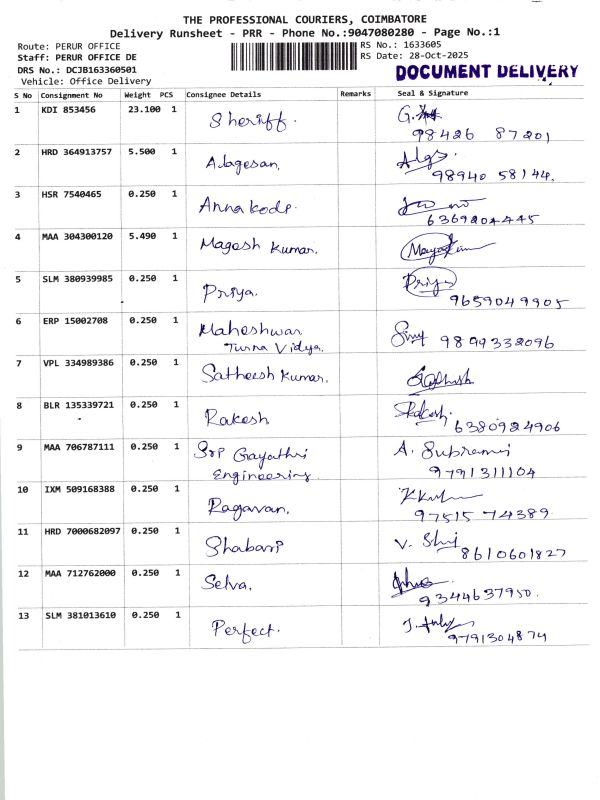 THE PROFESSIONAL COURIERS, COIMBATORE
Delivery Runsheet - PRR - Phone No.:9047080280 - Page No.:1
Route: PERUR OFFICE
RS No.: 1633605
Staff: PERUR OFFICE DE
RS Date: 28-Oct-2025
DRS No.: DCJB163360501
DOCUMENT DELIVERY
Vehicle: Office Delivery
S No Consignment No Weight PCS Consignee Details Remarks Seal & Signature
1 KDI 853456 23.100 1 Sheriff.
98426 87201
2 HRD 364913757 5.500 1 Alagesan.
98940 58144.
3 HSR 7540465 0.250 1 Annakodi.
6369204445
4 MAA 304300120 5.490 1 Magesh Kumar.
5 SLM 380939985 0.250 1 Priya. Priya
9659049905
6 ERP 15002708 0.250 1 Maheshwar
Turna Vidya. 9899332096
7 VPL 334989386 0.250 1 Satheesh Kumar.
8 BLR 135339721 0.250 1 Rakesh Rakesh.
6380924906
9 MAA 706787111 0.250 1 Sri Gayathri A.
Engineering. 9791311104
10 IXM 509168388 0.250 1 Ragavan.
97515 74389.
11 HRD 7000682097 0.250 1 Shabari V.
8610601827
12 MAA 712762000 0.250 1 Selva.
9344637950.
13 SLM 381013610 0.250 1 Perfect. J.
9791304874